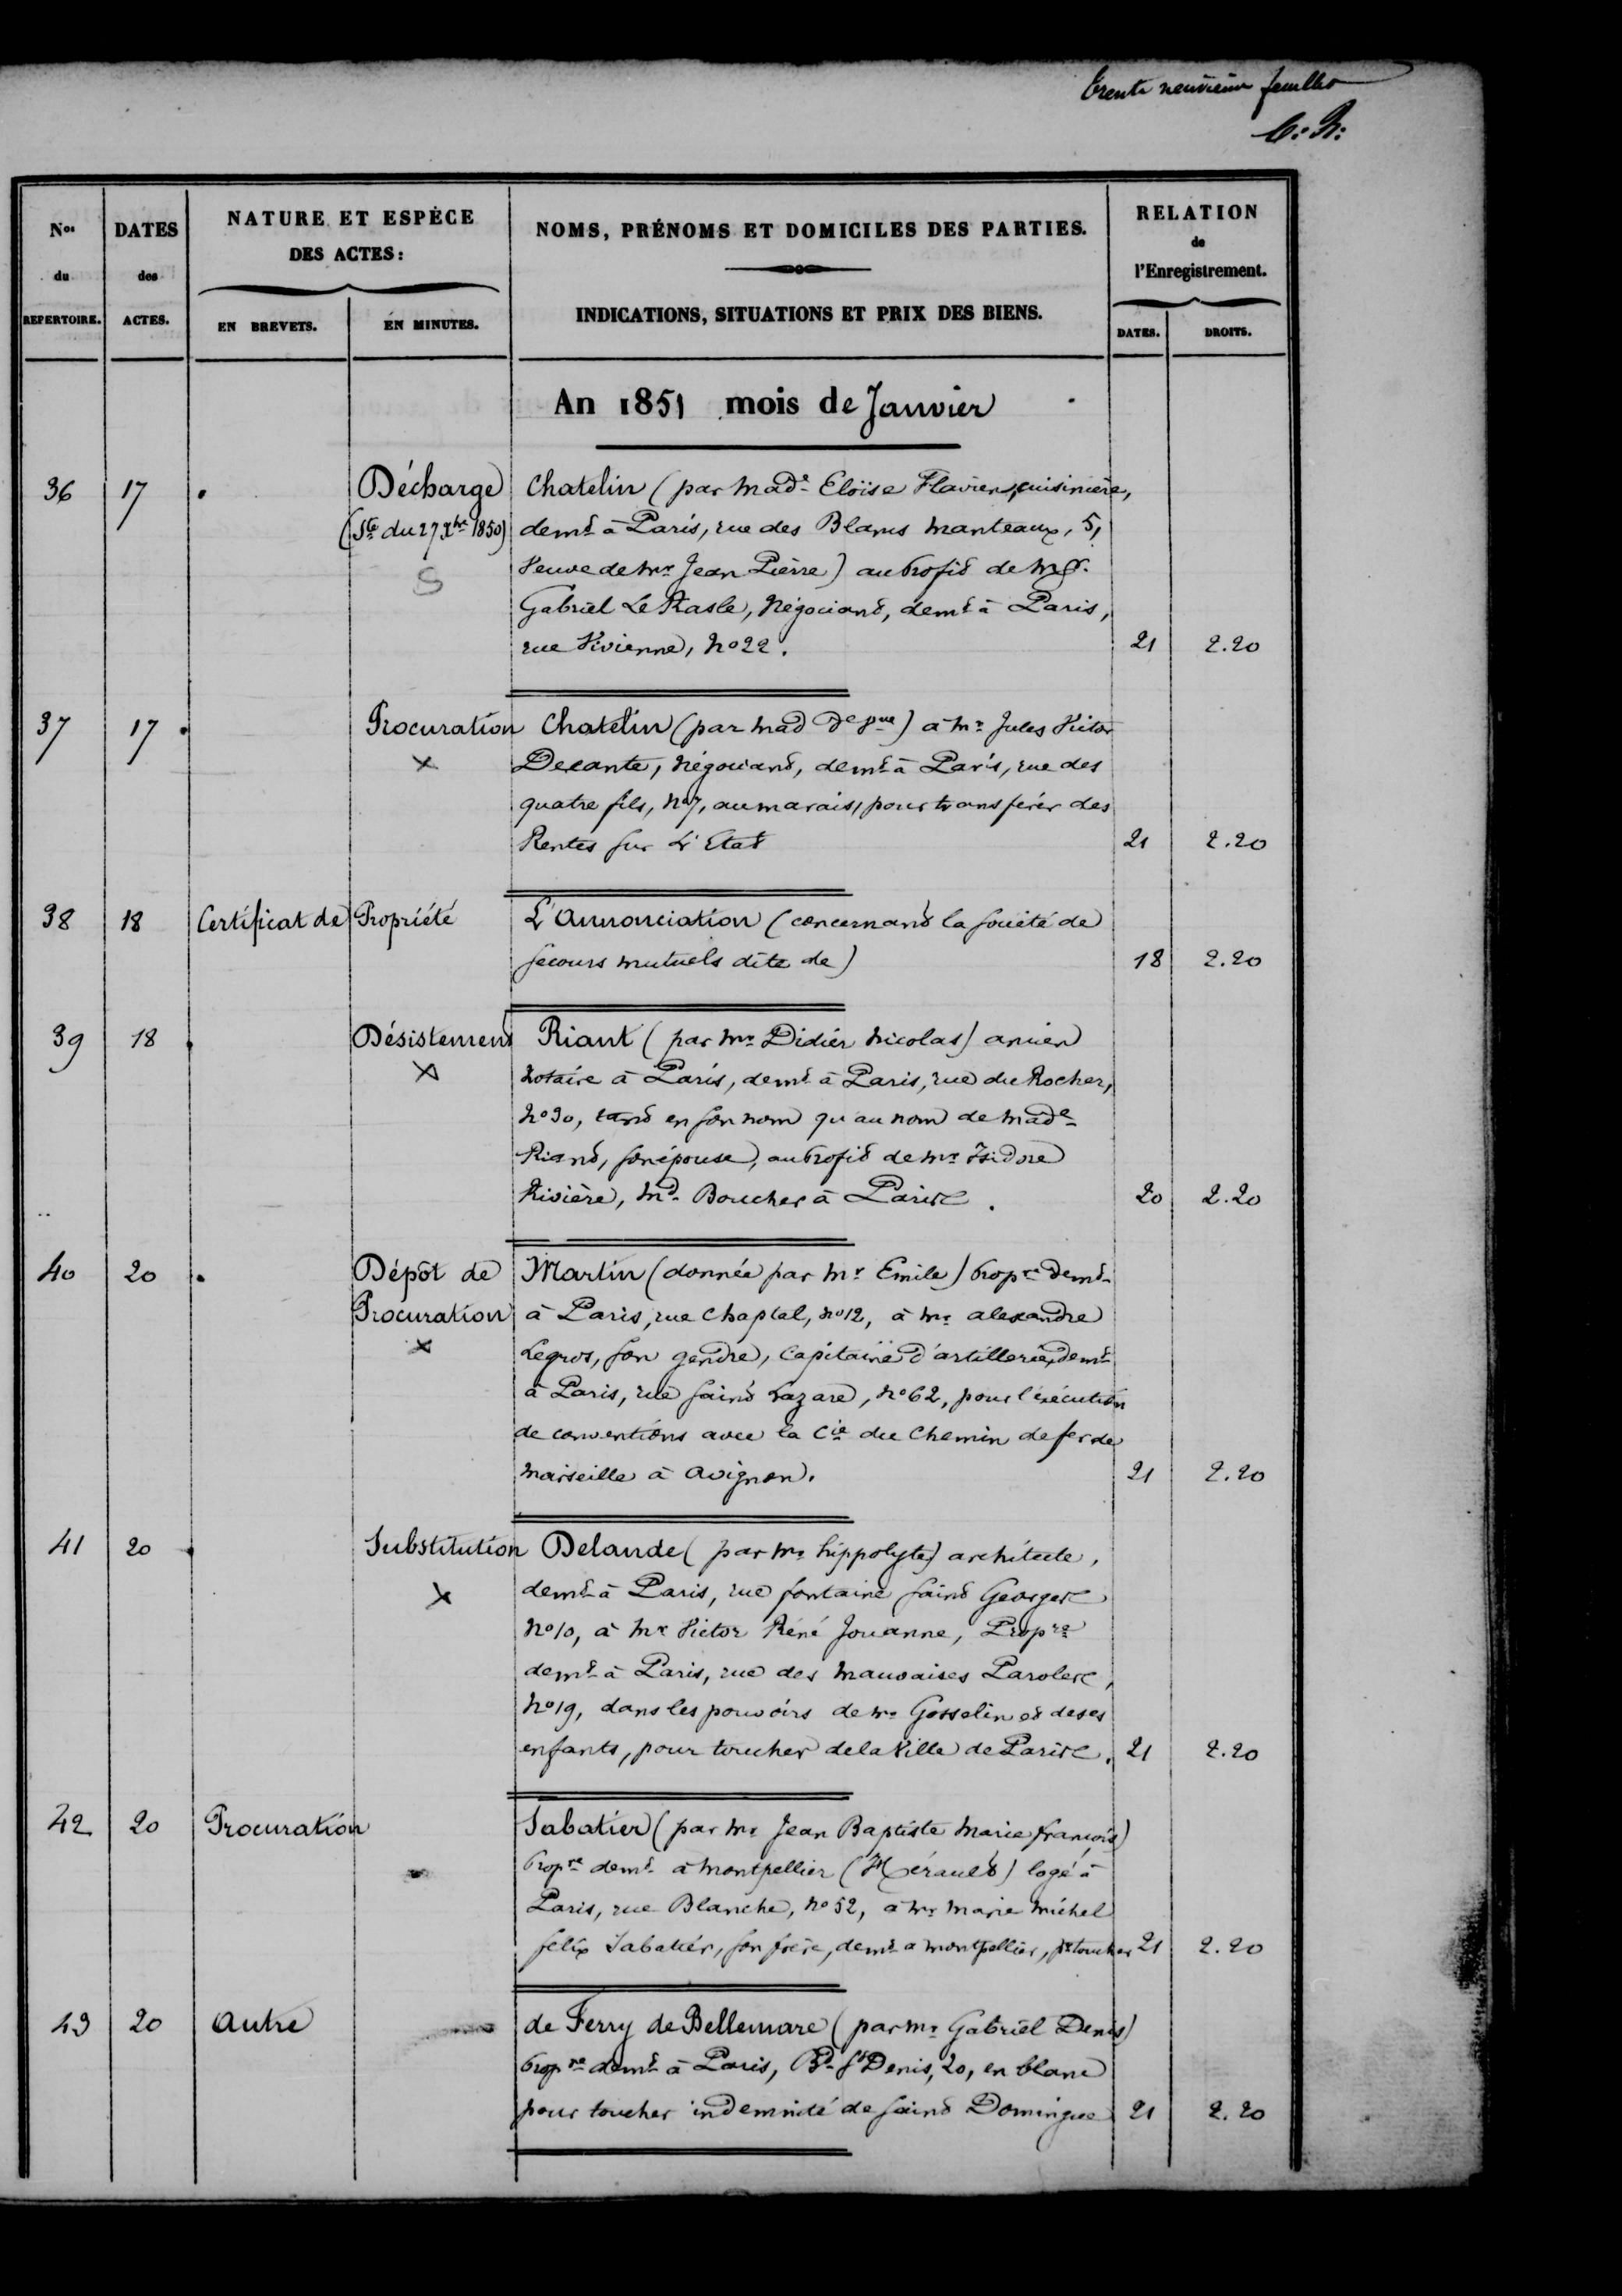 Trente neuvième feuillet
C. R.
Nos du REPERTOIRE. DATES des ACTES. NATURE ET ESPÈCE DES ACTES: EN BREVETS. EN MINUTES. NOMS, PRÉNOMS ET DOMICILES DES PARTIES. INDICATIONS, SITUATIONS ET PRIX DES BIENS. RELATION de l'Enregistrement. DATES. DROITS.
An 1851 mois de Janvier
36 17 Décharge Chatelin (par Made Eloïse Flavien, cuisinière,
(Ste du 27 Xbre 1850) demt à Paris, rue des Blancs Manteaux, 5,
S Veuve de Mr Jean Pierre) au profit de Mr
Gabriel Le Rasle, Négociant, demt à Paris,
rue Vivienne, No 22. 21 2.20
37 17 Procuration Chatelin (par Mad de Vve) à Mr Jules Victor
x Decante, Négociant, demt à Paris, rue des
quatre fils, No 7, au marais, pour transférer des
Rentes sur L'Etat 21 2.20
38 18 Certificat de Propriété L'Annonciation (concernant la société de
secours mutuels dite de) 18 2.20
39 18 Désistement Riant (par Mr Didier Nicolas) ancien
x Notaire à Paris, demt à Paris, rue du Rocher,
No 30, tant en son nom qu'au nom de Made
Riant, son épouse, au profit de Mr Isidore
Rivière, Md Boucher à Paris. 20 2.20
40 20 Dépôt de Martin (donnée par Mr Emile) propre demt
Procuration à Paris, rue Chaptal, No 12, à Mr Alexandre
x Legros, son gendre, Capitaine d'artillerie, demt
à Paris, rue saint Lazare, No 62, pour l'exécution
de conventions avec la Cie du Chemin de fer de
Marseille à Avignon. 21 2.20
41 20 Substitution Delaude (par Mr hippolyte) architecte,
x demt à Paris, rue fontaine saint Georges
No 10, à Mr Victor Réné Jouanne, Propre
demt à Paris, rue des Mauvaises Paroles,
No 19, dans les pouvoirs de Mr Gosselin et de ses
enfants, pour toucher de la Ville de Paris. 21 2.20
42 20 Procuration Sabatier (par Mr Jean Baptiste Marie françois)
propre demt à Montpellier (Hérault) logé à
Paris, rue Blanche, No 52, à Mr Marie Michel
felix Sabatier, son frère, demt à Montpellier, pr toucher 21 2.20
43 20 Autre de Ferry de Bellemare (par Mr Gabriel Denis)
propre demt à Paris, Bd St Denis, 20, en blanc
pour toucher indemnité de saint Domingue 21 2.20